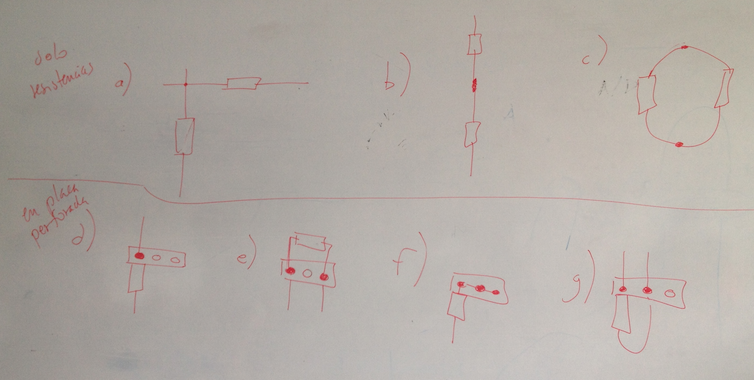 solo
resistencias
a)
b)
c)
en placa
perforada
d)
e)
f)
g)